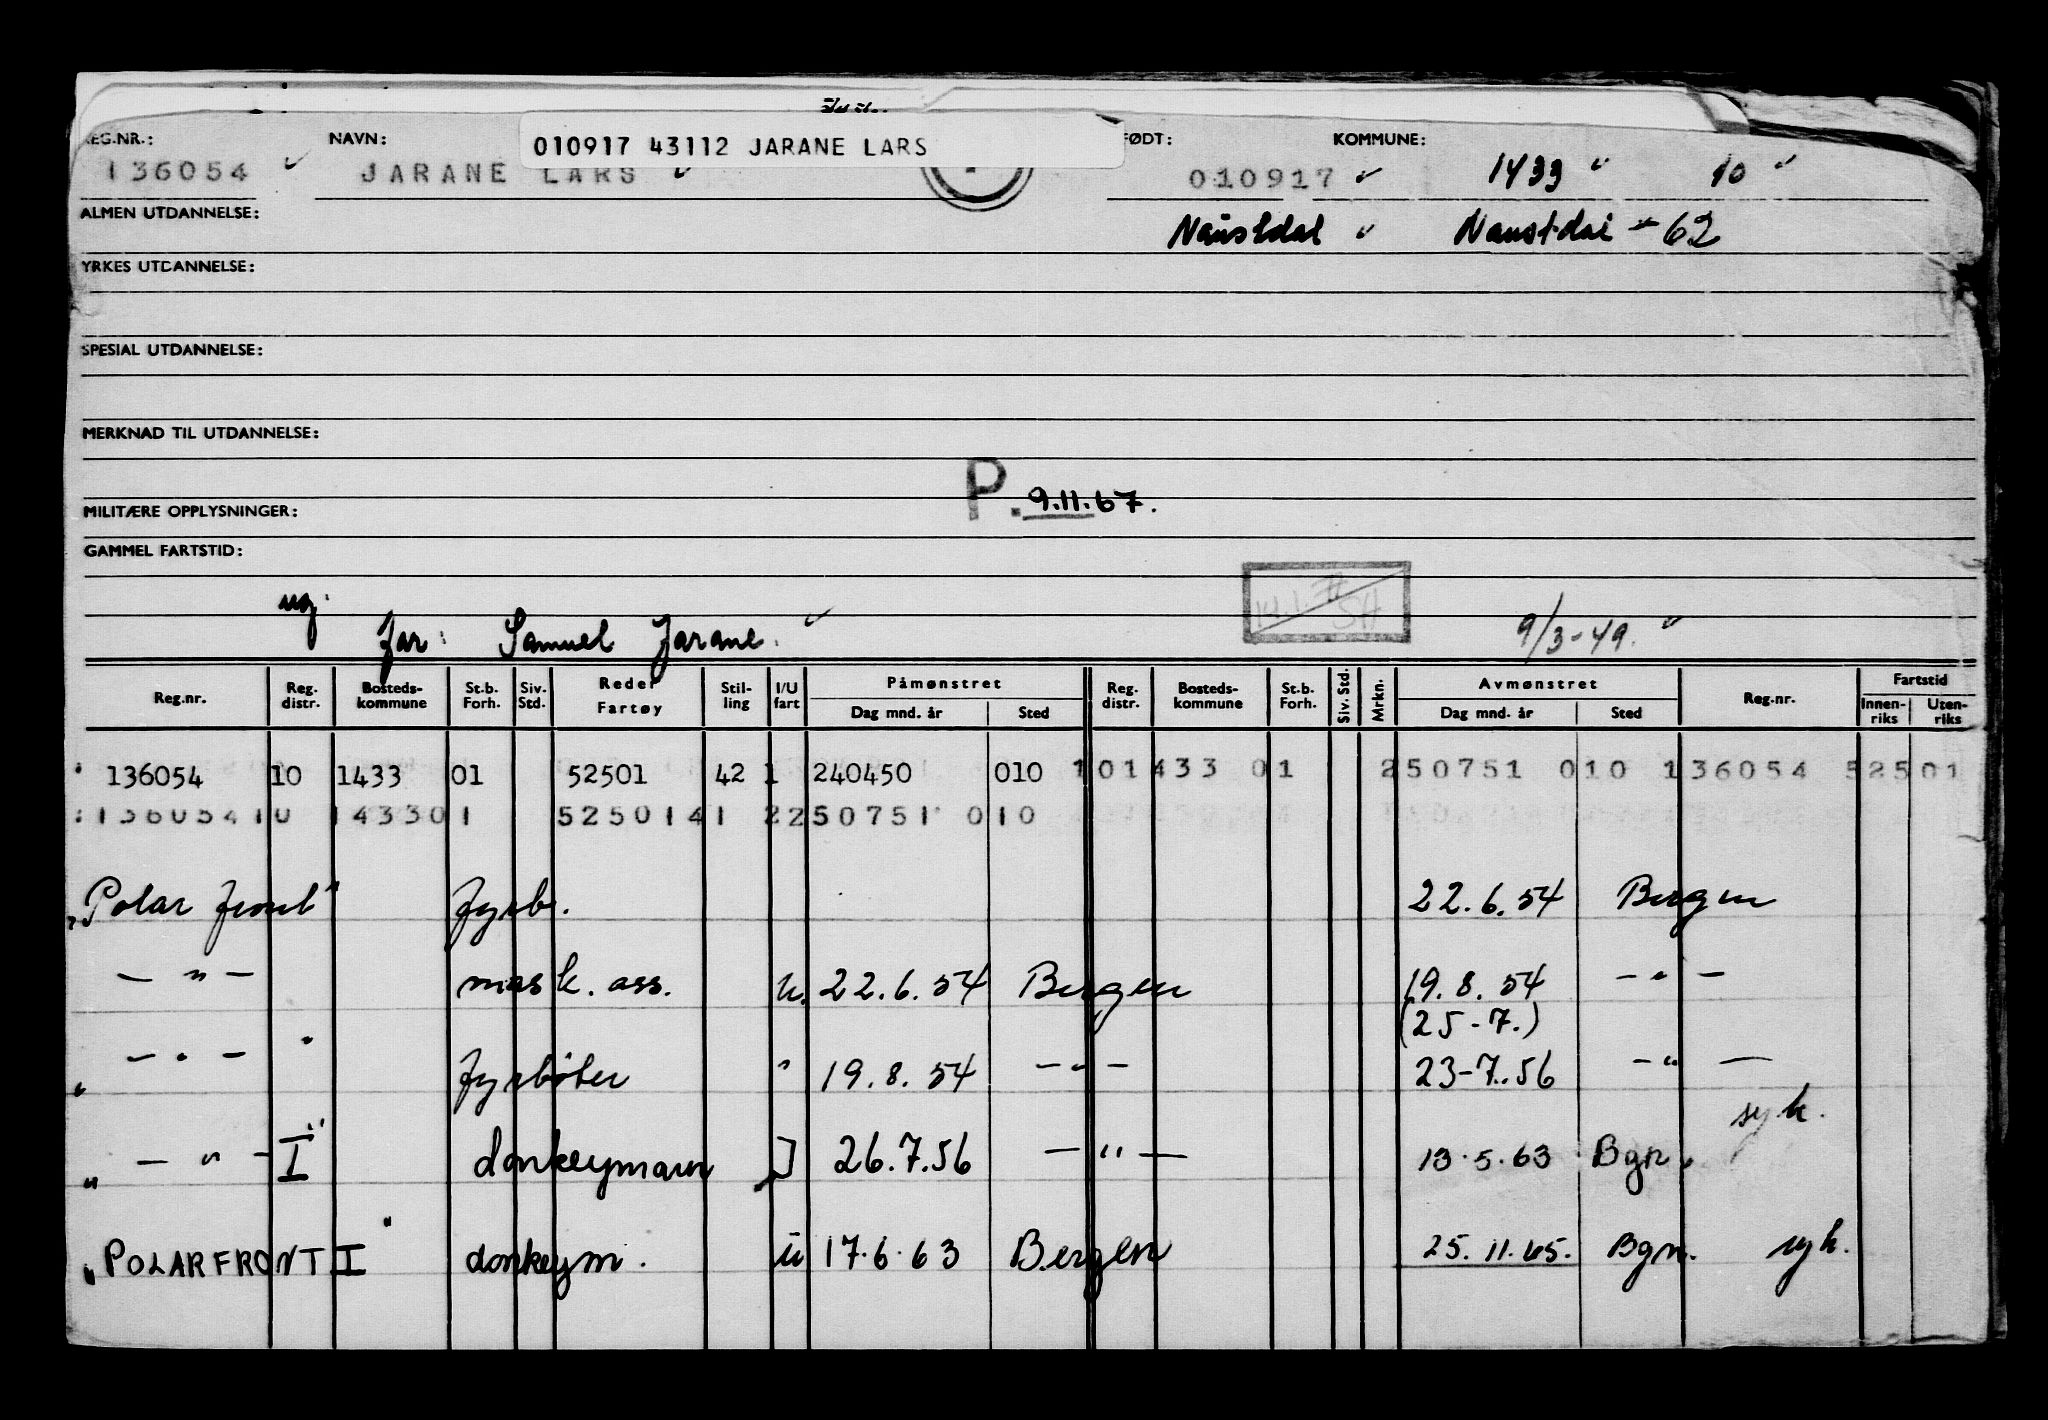 010917 43112 JARANE LARS
REG.NR.: NAVN: FØDT: KOMMUNE:
136054 JARANE LARS 010917 1433 10
ALMEN UTDANNELSE: Naustdal Naustdal - 62
YRKES UTDANNELSE:
SPESIAL UTDANNELSE:
MERKNAD TIL UTDANNELSE:
P. 9.11.67.
MILITÆRE OPPLYSNINGER:
GAMMEL FARTSTID:
ug.
far: Samuel Jarane. 9/3-49.
Reg.nr. Reg. distr. Bosteds-kommune St.b. Forh. Siv. Std. Reder Fartøy Stil-ling I/U fart Påmønstret Dag mnd. år Sted Reg. distr. Bosteds-kommune St.b. Forh. Siv. Std. Mrkn. Avmønstret Dag mnd. år Sted Reg.nr. Fartstid Innen-riks Uten-riks
136054 10 1433 01 52501 42 1 240450 010 101433 01 250751 010 136054 52501
13605410 143301 5250141 2250751 010
"Polar front" fyrb. 22.6.54 Bergen
— " — mask. ass. u. 22.6.54 Bergen 19.8.54 — " —
(25-7.)
" — " — " fyrbøter " 19.8.54 — " — 23-7.56 — " —
syk.
" — " — I" donkeymann 26.7.56 — " — 13.5.63 Bgn.
"POLARFRONT I" donkeym. u 17.6.63 Bergen 25.11.65. Bgn. syk.